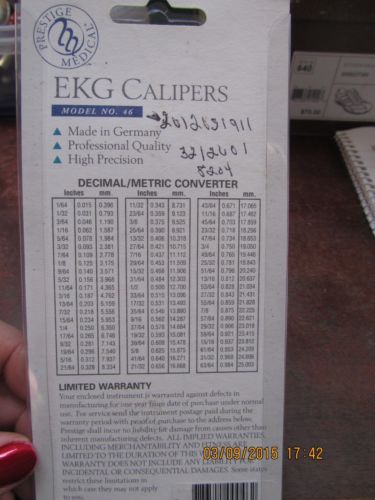 PRESTIGE MEDICAL
EKG CALIPERS
MODEL NO. 46
2012051911
▲ Made in Germany
▲ Professional Quality
▲ High Precision
3212001
8204
640
$70.00
DECIMAL/METRIC CONVERTER
Inches mm. Inches mm. Inches mm.
1/64 0.015 0.396 11/32 0.343 8.731 43/64 0.671 17.065
1/32 0.031 0.793 23/64 0.359 9.123 11/16 0.687 17.462
3/64 0.046 1.190 3/8 0.375 9.525 45/64 0.703 17.859
1/16 0.062 1.587 25/64 0.390 9.921 23/32 0.718 18.256
5/64 0.078 1.984 13/32 0.406 10.318 47/64 0.734 18.653
3/32 0.093 2.381 27/64 0.421 10.715 3/4 0.750 19.050
7/64 0.109 2.778 7/16 0.437 11.112 49/64 0.765 19.446
1/8 0.125 3.175 29/64 0.453 11.509 25/32 0.781 19.843
9/64 0.140 3.571 15/32 0.468 11.906 51/64 0.796 20.240
5/32 0.156 3.968 31/64 0.484 12.303 13/16 0.812 20.637
11/64 0.171 4.365 1/2 0.500 12.700 53/64 0.828 21.034
3/16 0.187 4.762 33/64 0.515 13.096 27/32 0.843 21.431
13/64 0.203 5.159 17/32 0.531 13.493 55/64 0.859 21.828
7/32 0.218 5.556 35/64 0.546 13.890 7/8 0.875 22.225
15/64 0.234 5.953 9/16 0.562 14.287 57/64 0.890 22.621
1/4 0.250 6.350 37/64 0.578 14.684 29/32 0.906 23.018
17/64 0.265 6.746 19/32 0.593 15.081 59/64 0.921 23.415
9/32 0.281 7.143 39/64 0.609 15.478 15/16 0.937 23.812
19/64 0.296 7.540 5/8 0.625 15.875 61/64 0.953 24.209
5/16 0.312 7.937 41/64 0.640 16.271 31/32 0.968 24.606
21/64 0.328 8.334 21/32 0.656 16.668 63/64 0.984 25.003
LIMITED WARRANTY
Your enclosed instrument is warranted against defects in
manufacturing for one year from date of purchase under normal
use. For service send the instrument postage paid during the
warranty period with proof of purchase to the address below.
Prestige shall incur no liability for damage from causes other than
inherent manufacturing defects. ALL IMPLIED WARRANTIES,
INCLUDING MERCHANTABILITY AND FITNESS ARE
LIMITED TO THE DURATION OF THIS WARRANTY. THIS
WARRANTY DOES NOT INCLUDE ANY LIABILITY FOR
INCIDENTAL OR CONSEQUENTIAL DAMAGES. Some states
restrict these limitations in
which case they may not apply
to you.
03/09/2015 17:42